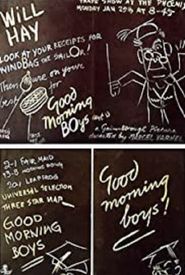 WILL
HAY
TRADE SHOW AT THE
MONDAY JAN 29th AT 8-45
LOOK AT YOUR RECEIPTS FOR
WINDBAG THE SAILOR!
Then
you're
for
Good
Morning
Boys
a Gainsborough Picture
directed by MARCEL VARNEL
2-1 FAIR MAID
UNIVERSAL SELECTION
THREE STAR
GOOD
MORNING
BOYS
Good
morning
boys!